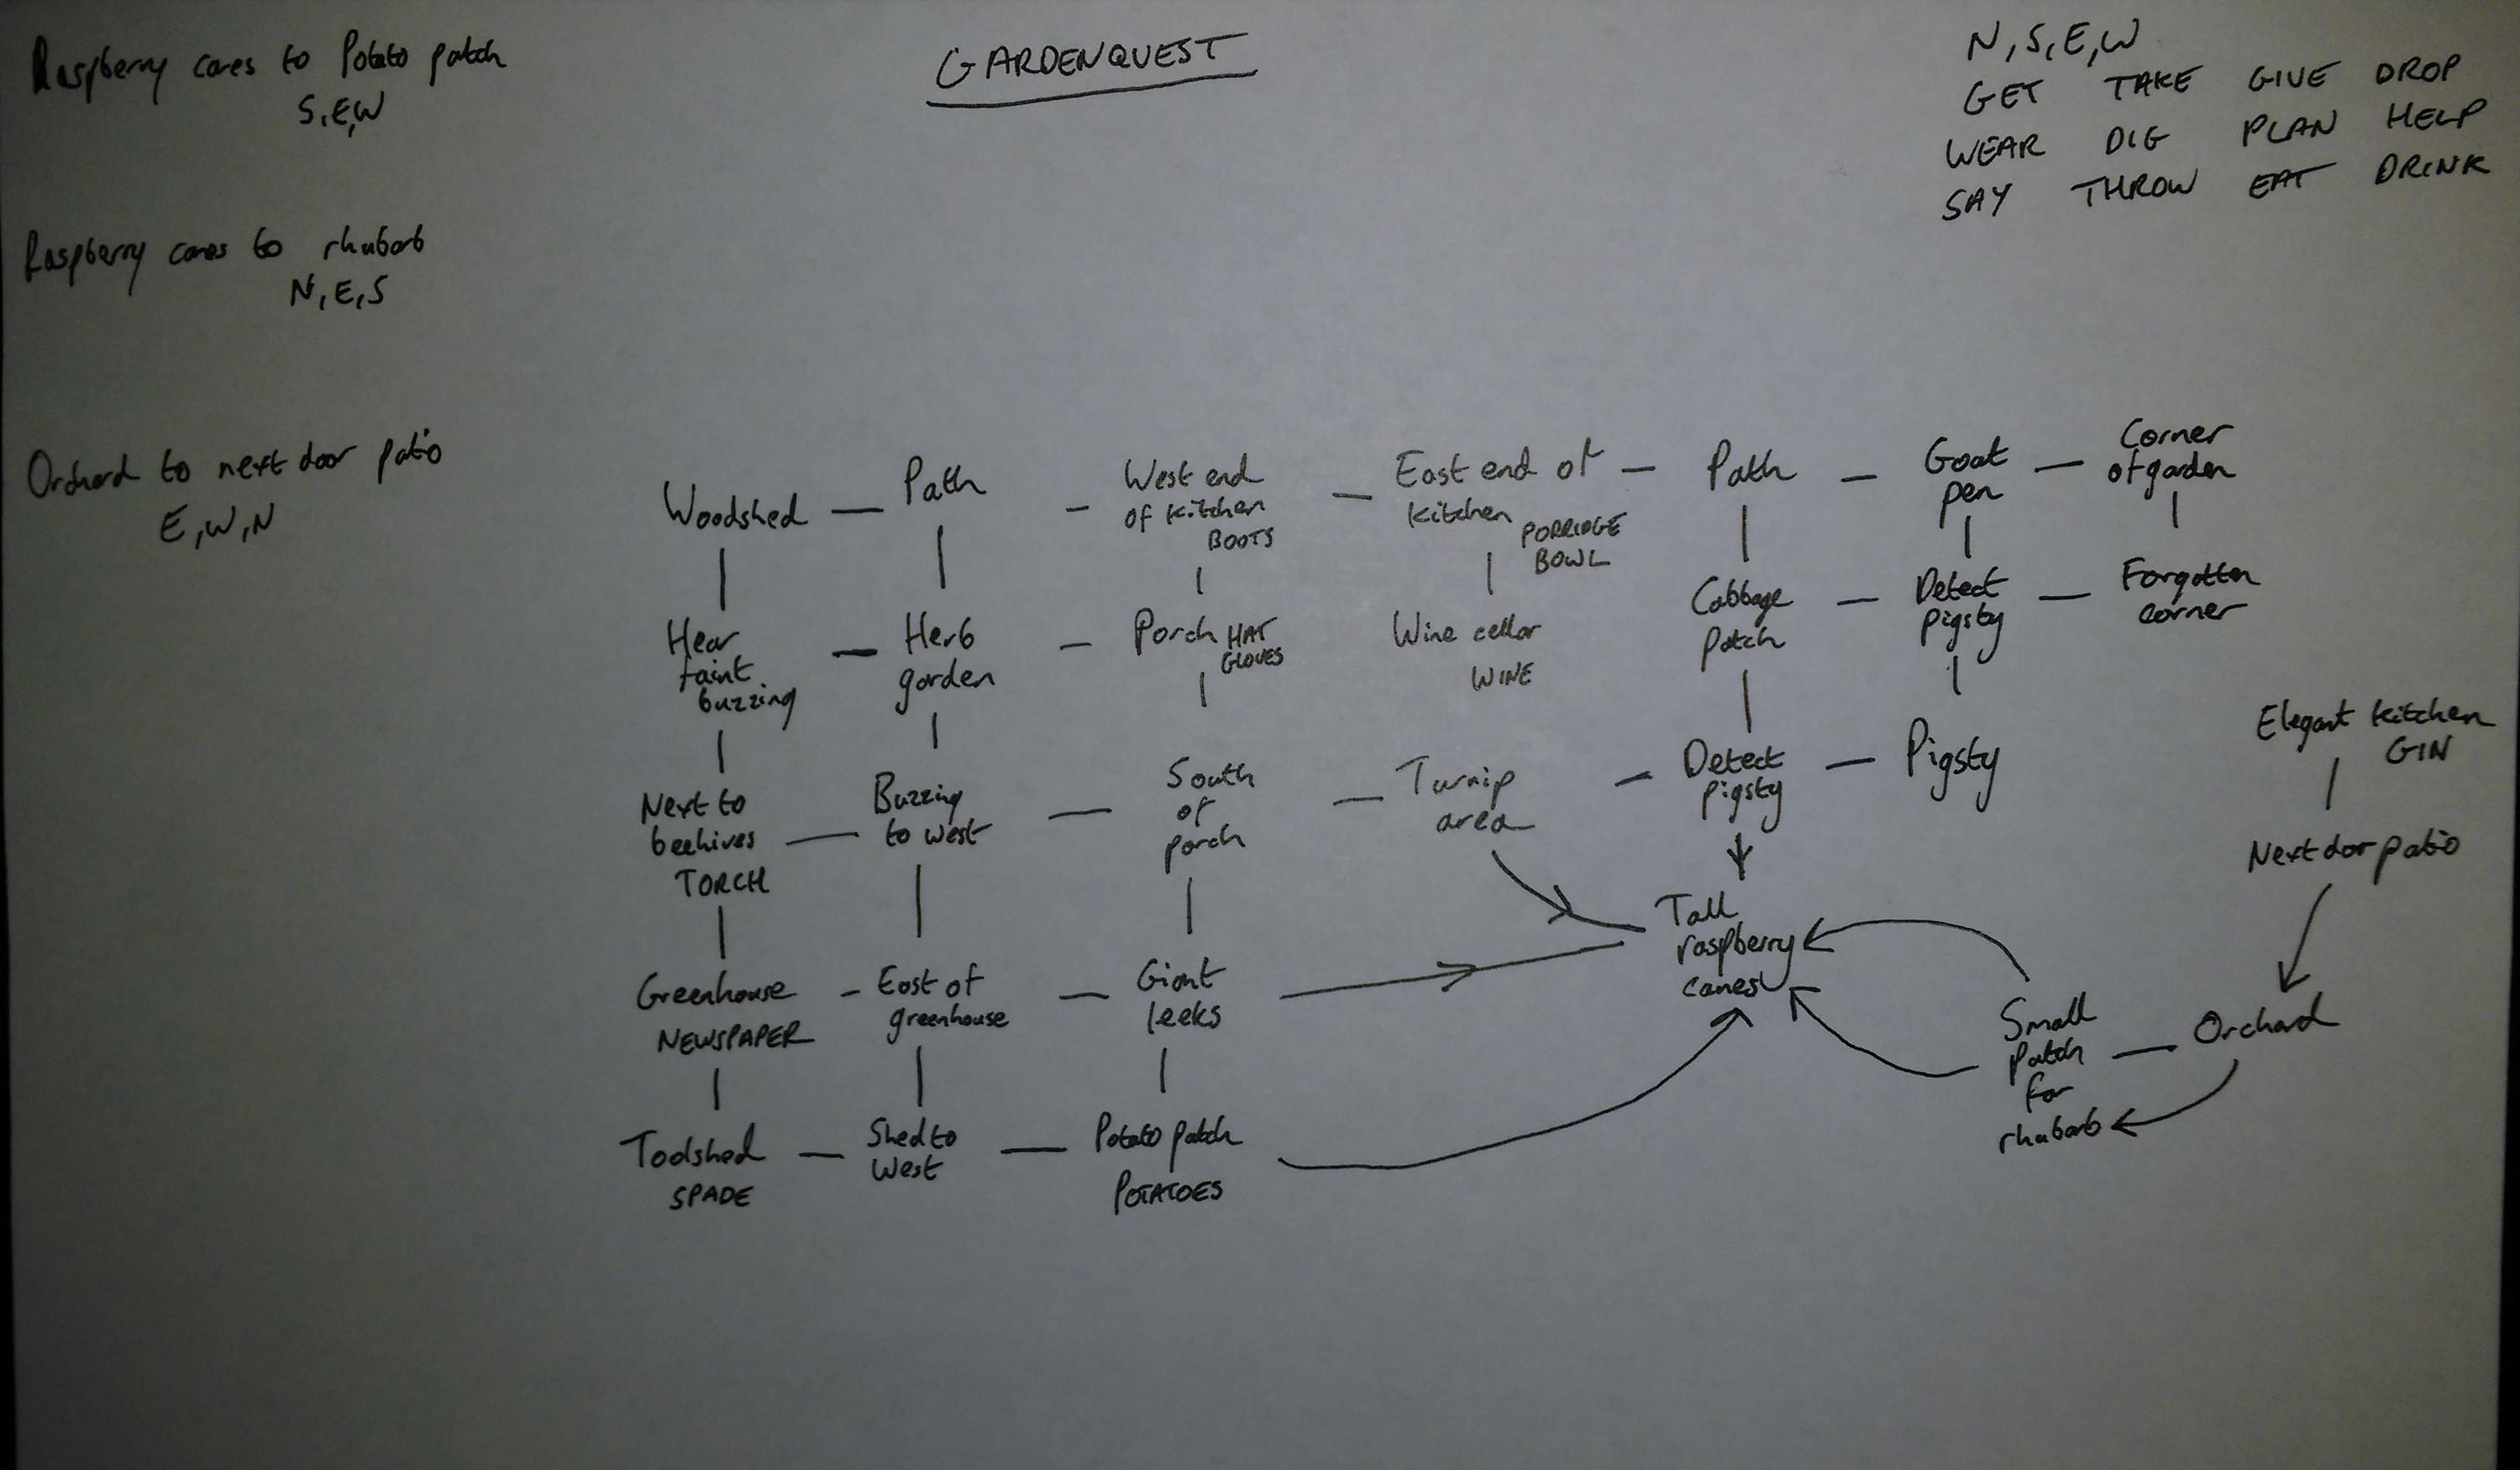 Raspberry canes to Potato patch
S,E,W
Raspberry canes to rhubarb
N,E,S
Orchard to next door patio
E,W,N
GARDENQUEST
N,S,E,W
GET TAKE GIVE DROP
WEAR DIG PLAN HELP
SAY THROW EAT DRINK
Woodshed
Path
West end
of kitchen
BOOTS
East end of
kitchen
PORRIDGE
BOWL
Path
Goat
pen
Corner
of garden
Hear
faint
buzzing
Herb
garden
Porch HAT
GLOVES
Wine cellar
WINE
Cabbage
patch
Detect
pigsty
Forgotten
corner
Next to
beehives
TORCH
Buzzing
to west
South
of
porch
Turnip
area
Detect
pigsty
Pigsty
Elegant kitchen
GIN
Next door patio
Greenhouse
NEWSPAPER
East of
greenhouse
Giant
leeks
Tall
raspberry
canes
Small
patch
for
rhubarb
Orchard
Toolshed
SPADE
Shed to
West
Potato patch
POTATOES